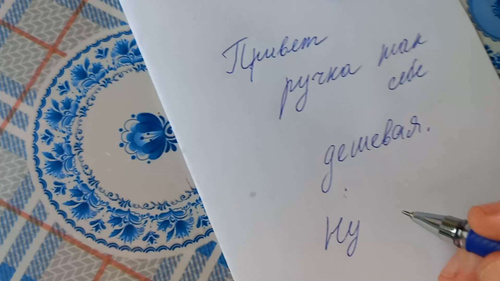 Привет
ручка так
себе
дешевая.
Ну